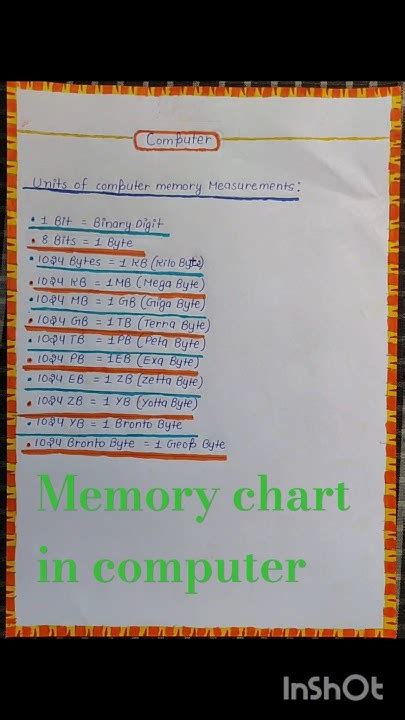 Computer
Units of computer memory Measurements:
• 1 Bit = Binary Digit
• 8 Bits = 1 Byte
• 1024 Bytes = 1 KB (Kilo Byte)
• 1024 KB = 1MB (Mega Byte)
• 1024 MB = 1 GB (Giga Byte)
• 1024 GB = 1 TB (Terra Byte)
• 1024 TB = 1PB (Peta Byte)
• 1024 PB = 1EB (Exa Byte)
• 1024 EB = 1 ZB (Zetta Byte)
• 1024 ZB = 1 YB (Yotta Byte)
• 1024 YB = 1 Bronto Byte
• 1024 Bronto Byte = 1 Geop Byte
Memory chart
in computer
InShOt